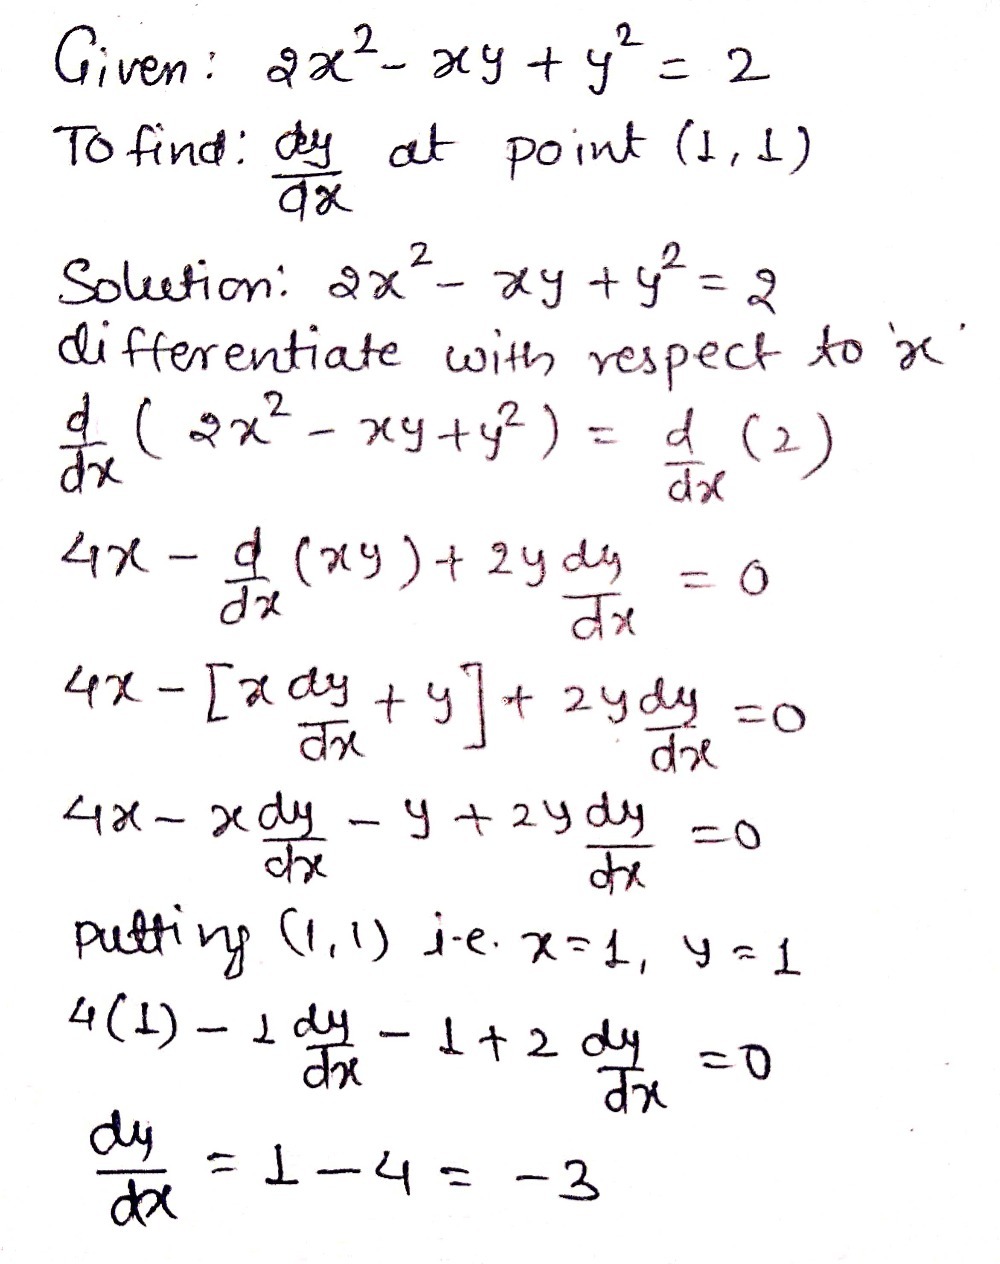 Given: 2x² - xy + y² = 2
To find: dy/dx at point (1, 1)
Solution: 2x² - xy + y² = 2
differentiate with respect to 'x'
d/dx (2x² - xy + y²) = d/dx (2)
4x - d/dx (xy) + 2y dy/dx = 0
4x - [x dy/dx + y] + 2y dy/dx = 0
4x - x dy/dx - y + 2y dy/dx = 0
putting (1, 1) i.e. x = 1, y = 1
4(1) - 1 dy/dx - 1 + 2 dy/dx = 0
dy/dx = 1 - 4 = -3